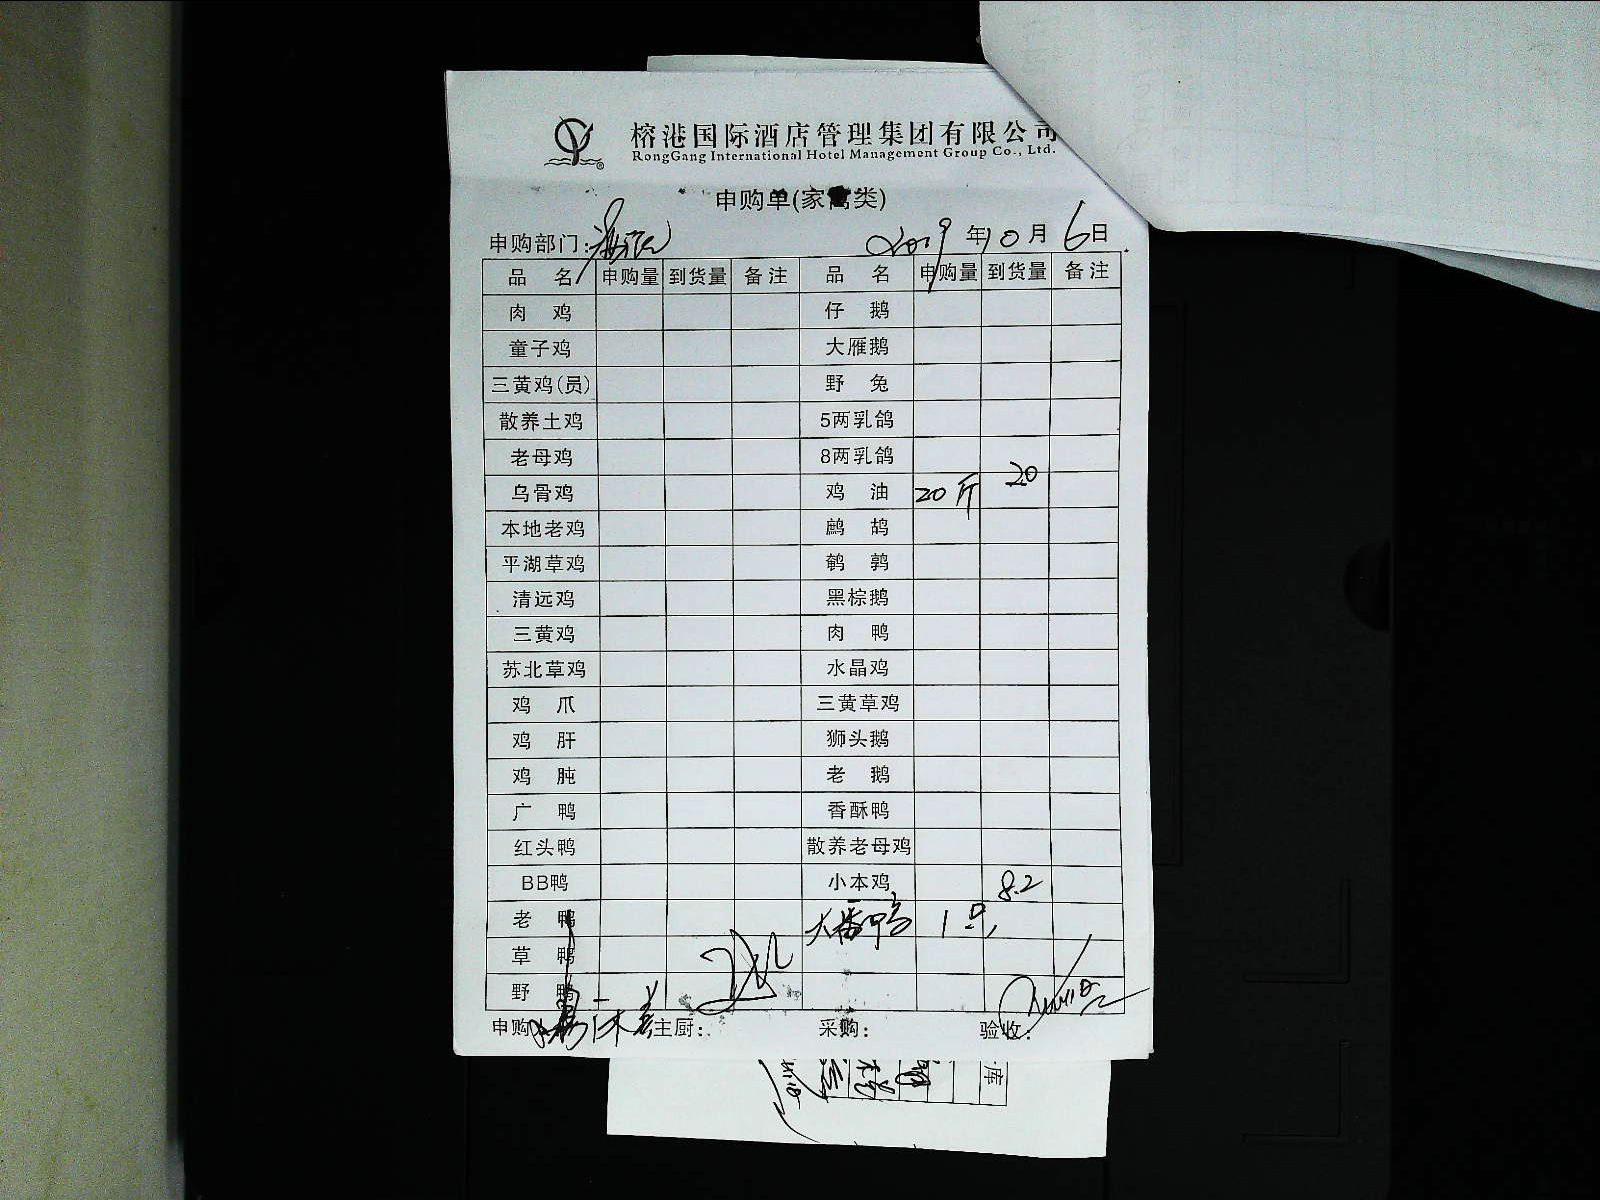 榕港国际酒店管理集团有限公司
RongGang International Hotel Management Group Co., Ltd.
申购单(家禽类)
申购部门: 2019年10月6日
品 名 申购量 到货量 备注 品 名 申购量 到货量 备注
肉 鸡 仔 鹅
童子鸡 大雁鹅
三黄鸡(员) 野 兔
散养土鸡 5两乳鸽
老母鸡 8两乳鸽
乌骨鸡 鸡 油 20斤 20
本地老鸡 鹧 鸪
平湖草鸡 鹌 鹑
清远鸡 黑棕鹅
三黄鸡 肉 鸭
苏北草鸡 水晶鸡
鸡 爪 三黄草鸡
鸡 肝 狮头鹅
鸡 肫 老 鹅
广 鸭 香酥鸭
红头鸭 散养老母鸡
BB鸭 小本鸡 8.2
老 鸭 大番鸭 1只
草 鸭
野 鸭
申购 主厨: 采购: 验收:
库